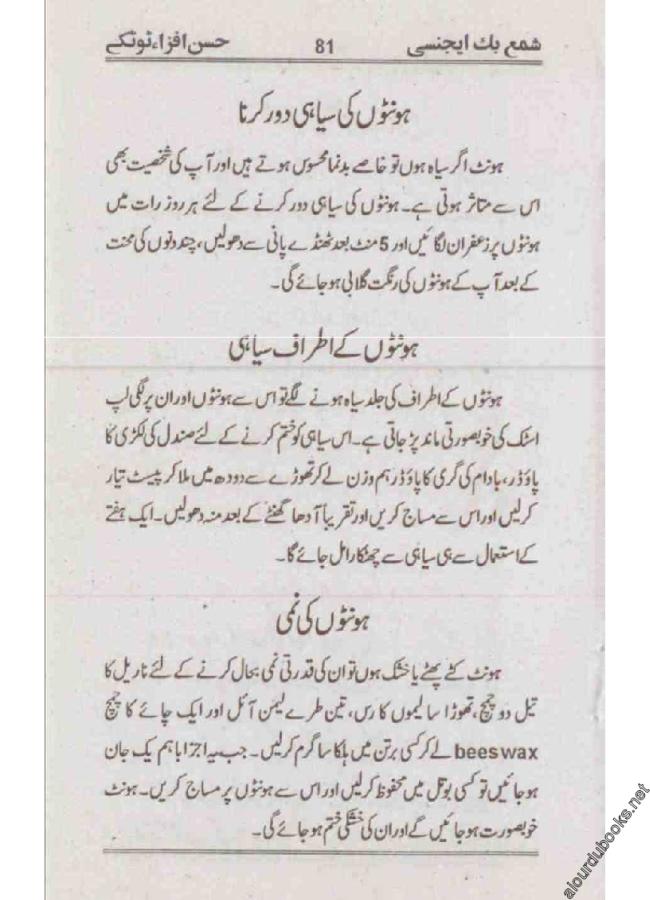 شمع بك ايجنسی 81 حسن افزاء ٹوٹکے
ہونٹوں کی سیاہی دور کرنا
ہونٹ اگر سیاہ ہوں تو خاصے بدنما محسوس ہوتے ہیں اور آپ کی شخصیت بھی
اس سے متاثر ہوتی ہے۔ ہونٹوں کی سیاہی دور کرنے کے لئے ہر روز رات میں
ہونٹوں پر زعفران لگائیں اور 5 منٹ بعد ٹھنڈے پانی سے دھولیں، چند دنوں کی محنت
کے بعد آپ کے ہونٹوں کی رنگت گلابی ہو جائے گی۔
ہونٹوں کے اطراف سیاہی
ہونٹوں کے اطراف کی جلد سیاہ ہونے لگے تو اس سے ہونٹوں اور ان پر لگی لپ
اسٹک کی خوبصورتی ماند پڑ جاتی ہے۔ اس سیاہی کو ختم کرنے کے لئے صندل کی لکڑی کا
پاؤڈر، بادام کی گری کا پاؤڈر ہم وزن لے کر تھوڑے سے دودھ میں ملا کر پیسٹ تیار
کرلیں اور اس سے مساج کریں اور تقریباً آدھا گھنٹے کے بعد منہ دھولیں۔ ایک ہفتے
کے استعمال سے ہی سیاہی سے چھٹکارا مل جائے گا۔
ہونٹوں کی نمی
ہونٹ کٹے پھٹے یا خشک ہوں تو ان کی قدرتی نمی بحال کرنے کے لئے ناریل کا
تیل دو چمچ، تھوڑا سا لیموں کا رس، تین قطرے لیمن آئل اور ایک چائے کا چمچ
beeswax لے کر کسی برتن میں ہلکا سا گرم کرلیں۔ جب یہ اجزا باہم یک جان
ہو جائیں تو کسی بوتل میں محفوظ کرلیں اور اس سے ہونٹوں پر مساج کریں۔ ہونٹ
خوبصورت ہو جائیں گے اور ان کی خشکی ختم ہو جائے گی۔
alourdubooks.net